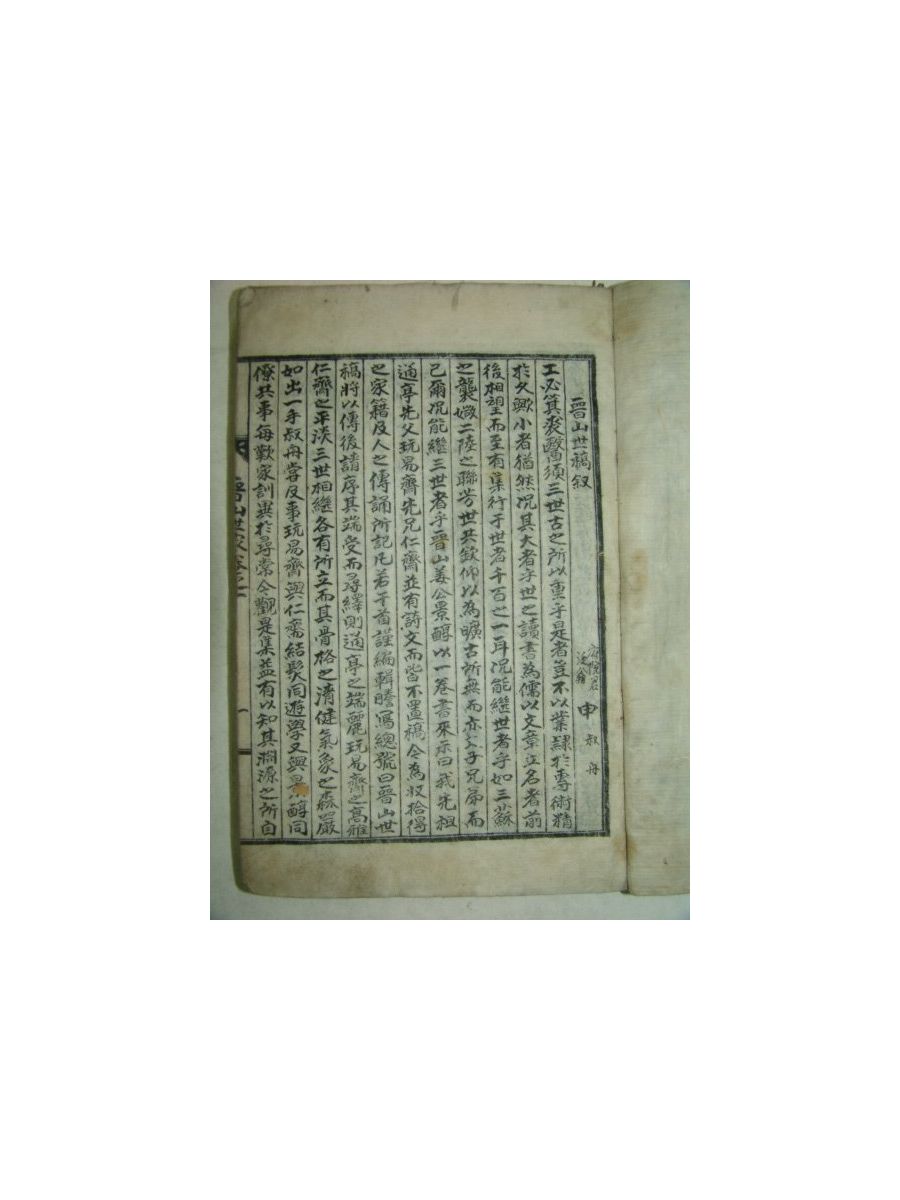 晉山世稿叙
府院君 申叔舟
工必箕裘醫須三世古之所以重乎是者豈不以業隷於專術精
於久歟小者猶然况其大者乎世之讀書爲儒以文章立名者前
後相望而至有集行于世者千百之一耳况能継世者乎如三蘇
之襲媺二陸之聯芳世共欽仰以爲曠古所無而亦父子兄弟而
已爾况能継三世者乎晉山姜公景醇以一卷書來示曰我先祖
通亭先父玩易齊先兄仁齊並有詩文而皆不置稿今爲収拾得
之家籍及人之傳誦所記凡若干首謹編輯謄寫緫號曰晉山世
稿將以傳後請序其端受而尋繹則通亭之端麗玩易齊之高雅
仁齊之平淡三世相継各有所立而其骨格之清健氣象之森嚴
如出一手叔舟甞及事玩易齊與仁齋結髮同遊學又與景醇同
僚共事每歎家訓異於尋常今觀是集益有以知其淵源之所自
晉山世稿卷之一
一